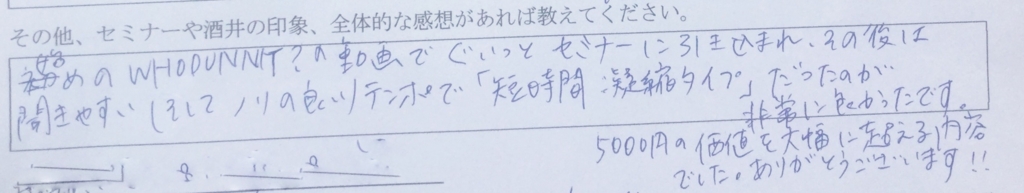 その他、セミナーや酒井の印象、全体的な感想があれば教えてください。
始めの WHODUNNIT? の動画で ぐいっと セミナーに引き込まれ、その後は
聞きやすい(そして ノリの良い)テンポで「短時間 凝縮タイプ」だったのが
非常に良かったです。
5000円の価値を大幅に超える内容
でした。ありがとうございます!!